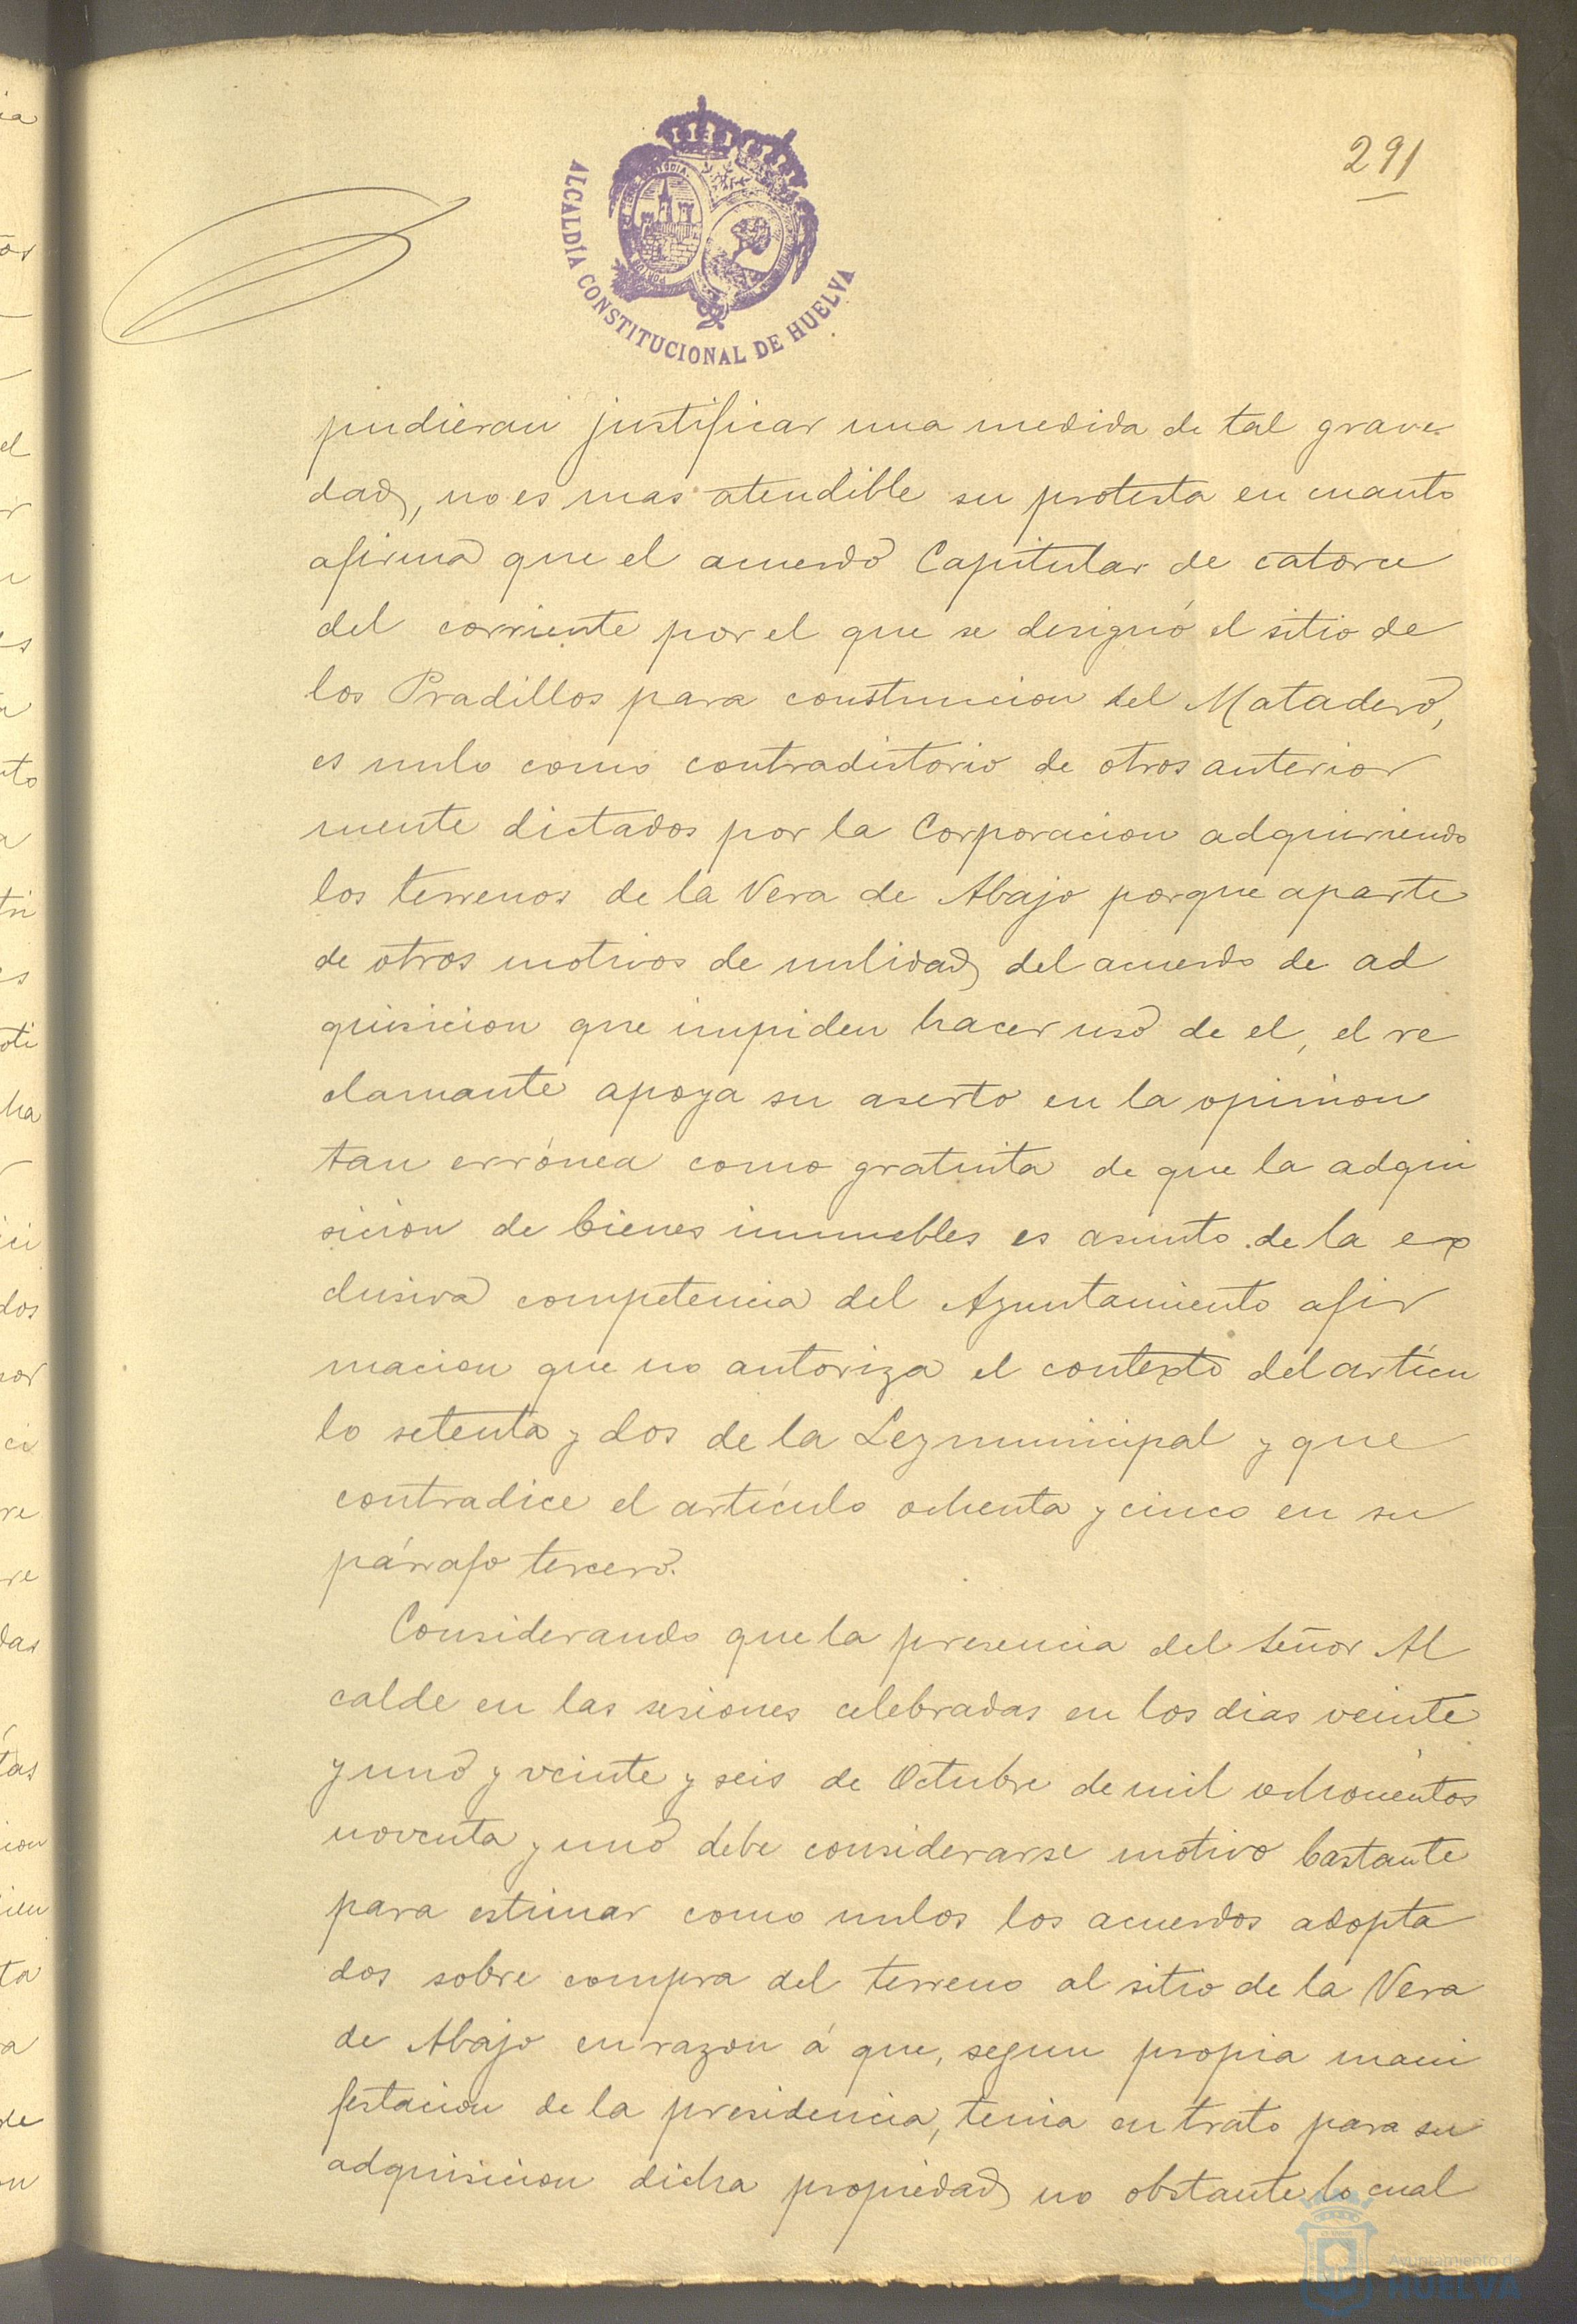 291
ALCALDÍA CONSTITUCIONAL DE HUELVA
pudieran justificar una medida de tal grave-
dad, no es mas atendible su protesta en cuanto
afirma que el acuerdo Capitular de catorce
del corriente por el que se designó el sitio de
los Pradillos para construccion del Matadero,
es nulo como contradictorio de otros anterior
mente dictados por la Corporacion adquiriendo
los terrenos de la Vera de Abajo porque aparte
de otros motivos de nulidad del acuerdo de ad
quisicion que impiden hacer uso de el, el re
clamante apoya su aserto en la opinion
tan errónea como gratuita de que la adqui
sicion de bienes inmuebles es asunto de la ex
clusiva competencia del Ayuntamiento afir
macion que no autoriza el contexto del artícu
lo setenta y dos de la Ley municipal y que
contradice el artículo ochenta y cinco en su
párrafo tercero.
Considerando que la presencia del señor Al
calde en las sesiones celebradas en los dias veinte
y uno y veinte y seis de Octubre de mil ochocientos
noventa y uno debe considerarse motivo bastante
para estimar como nulos los acuerdos adopta
dos sobre compra del terreno al sitio de la Vera
de Abajo en razon á que, segun propia mani
festacion de la presidencia, tenia en trato para su
adquisicion dicha propiedad no obstante lo cual
Ayuntamiento de
HUELVA